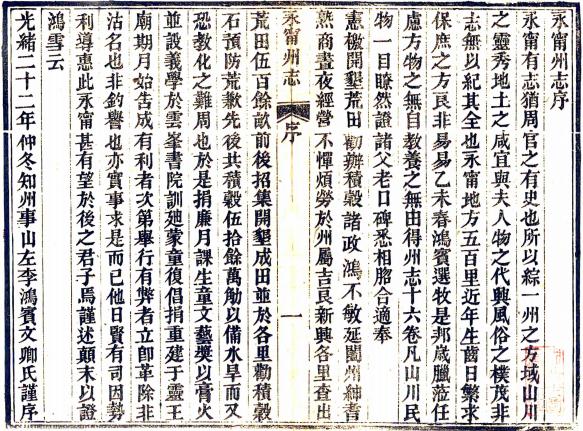 永甯州志序
永甯有志猶周官之有史也所以綜一州之方域山川
之靈秀地土之咸宜與夫人物之代興風俗之樸茂非
志無以紀其全也永甯地方五百里近年生齒日繁求
保庶之方良非易易乙未春鴻賓選牧是邦歲臘涖任
慮方物之無自教養之無由得州志十六卷凡山川民
物一目瞭然證諸父老口碑悉相脗合適奉
憲檄開墾荒田勸辦積穀諸政鴻不敏延闔州紳耆
熟商晝夜經營不憚煩勞於州屬吉良新興各里查出
永甯州志 序 一
荒田伍百餘畝前後招集開墾成田並於各里勸積穀
石預防荒歉先後共積穀伍拾餘萬觔以備水旱而又
恐教化之難周也於是捐廉月課生童文藝獎以膏火
並設義學於雲峯書院訓廸蒙童復倡捐重建于靈王
廟期月始告成有利者次第舉行有弊者立卽革除非
沽名也非釣譽也亦實事求是而已他日賢有司因勢
利導惠此永甯甚有望於後之君子焉謹述顛末以證
鴻雪云
光緒二十二年仲冬知州事山左李鴻賓文卿氏謹序